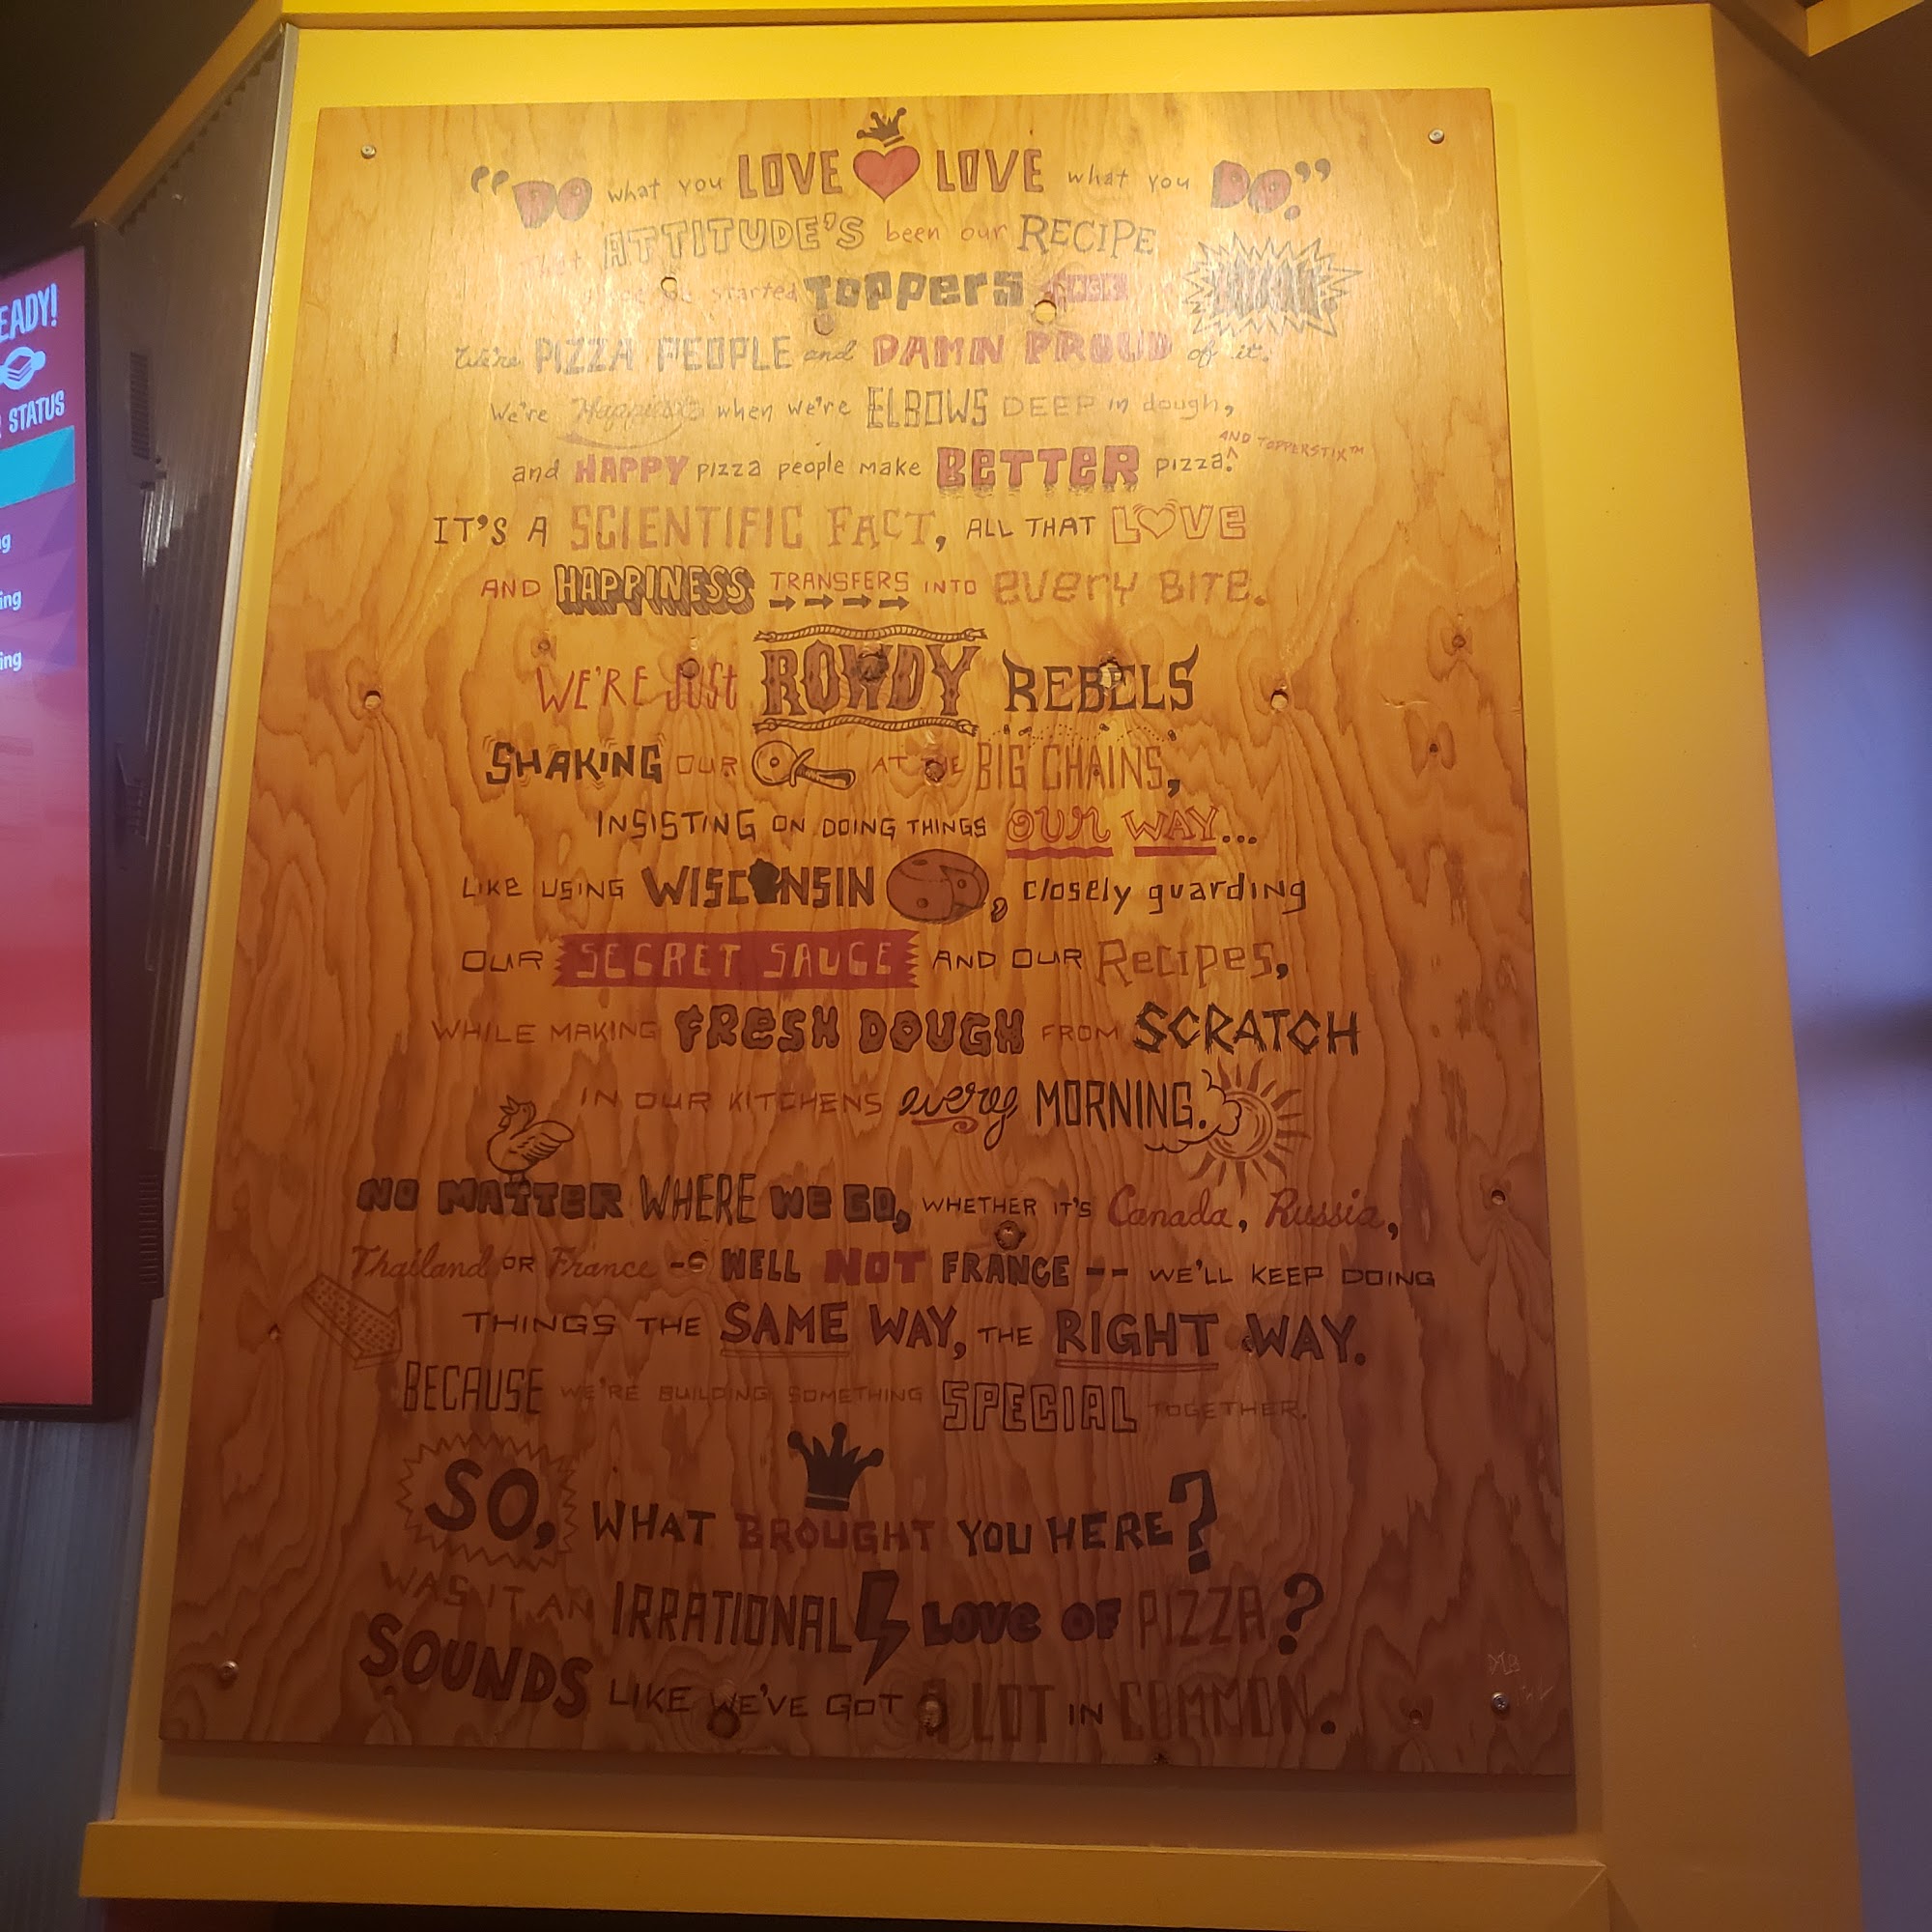 EADY!
STATUS
ng
ing
ing
"DO what you LOVE LOVE what you DO."
That ATTITUDE'S been our RECIPE
since we started Toppers
We're PIZZA PEOPLE and DAMN PROUD of it.
We're Happiest when we're ELBOWS DEEP in dough,
AND TOPPERSTIX™
and HAPPY pizza people make BETTER pizza.^
IT'S A SCIENTIFIC FACT, ALL THAT LOVE
AND HAPPINESS TRANSFERS INTO every BITE.
WE'RE JUST ROWDY REBELS
SHAKING OUR AT THE BIG CHAINS,
INSISTING ON DOING THINGS OUR WAY...
LIKE USING WISCONSIN , closely guarding
OUR SECRET SAUCE AND OUR Recipes,
WHILE MAKING FRESH DOUGH FROM SCRATCH
IN OUR KITCHENS every MORNING.
NO MATTER WHERE We GO, WHETHER IT'S Canada, Russia,
Thailand OR France -- WELL NOT FRANCE -- WE'LL KEEP DOING
THINGS THE SAME WAY, THE RIGHT WAY.
BECAUSE WE'RE BUILDING SOMETHING SPECIAL TOGETHER.
SO, WHAT BROUGHT YOU HERE?
WAS IT AN IRRATIONAL LOVE OF PIZZA?
SOUNDS LIKE WE'VE GOT A LOT IN COMMON.